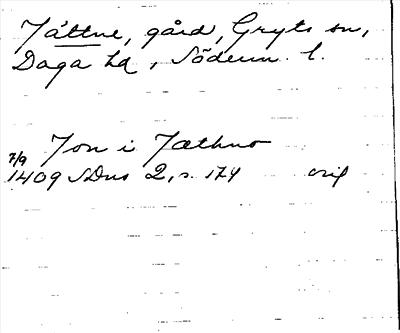 Jättne, gård, Gryts sn,
Daga hd, Söderm. l.
Jon i Jæthno
7/9
1409 SDns 2, s. 174 orig